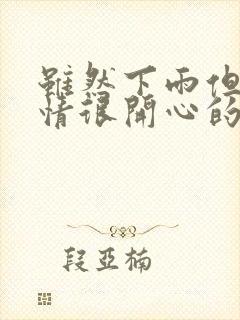 雖然下雨但
情很開心的
段亞楠